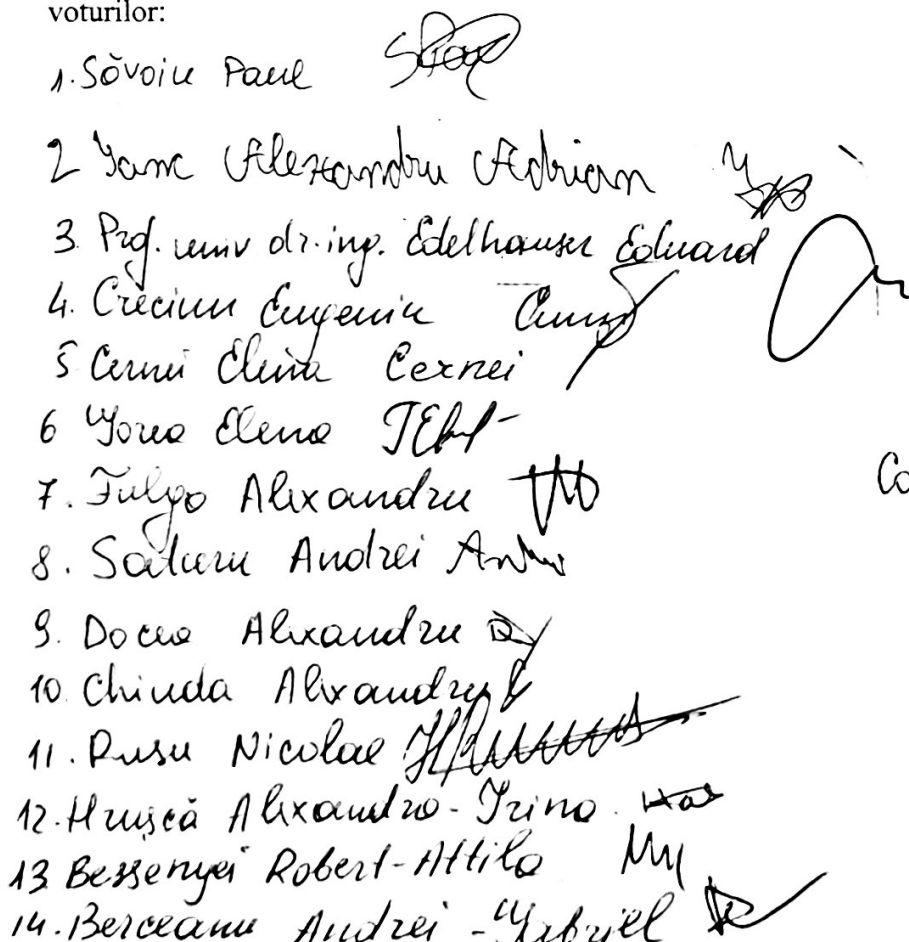 voturilor:
1. Săvoiu Paul
2 Ianc Alexandru Adrian
3. Prof. univ dr. ing. Edelhauser Eduard
4. Creciun Eugeniu
5 Cernei Elena Cernei
6 Iorea Elena
7. Fulga Alexandru
8. Andrei
9. Docea Alexandru
10. Chinda Alexandru
11. Rusu Nicolae
12. Hrușcă Alexandra-Irina
13 Bessenyei Robert-Attila
14. Berceanu Andrei-Gabriel
Co